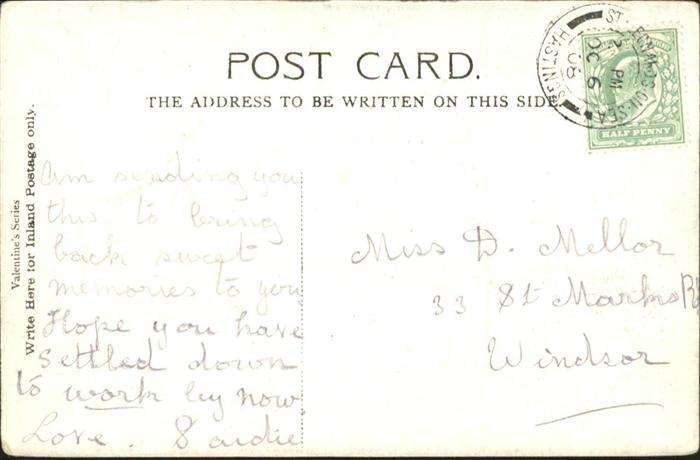 POST CARD.
THE ADDRESS TO BE WRITTEN ON THIS SIDE
HASTINGS
ST LEONARDS ON SEA
2 PM
OC 6
06
HALF PENNY
Valentine's Series
Write Here for Inland Postage only.
Am sending you
this to bring
back sweet
memories to you
Hope you have
Settled down
to work by now
Love.
Miss D. Mellor
33 St Marks Rd
Windsor